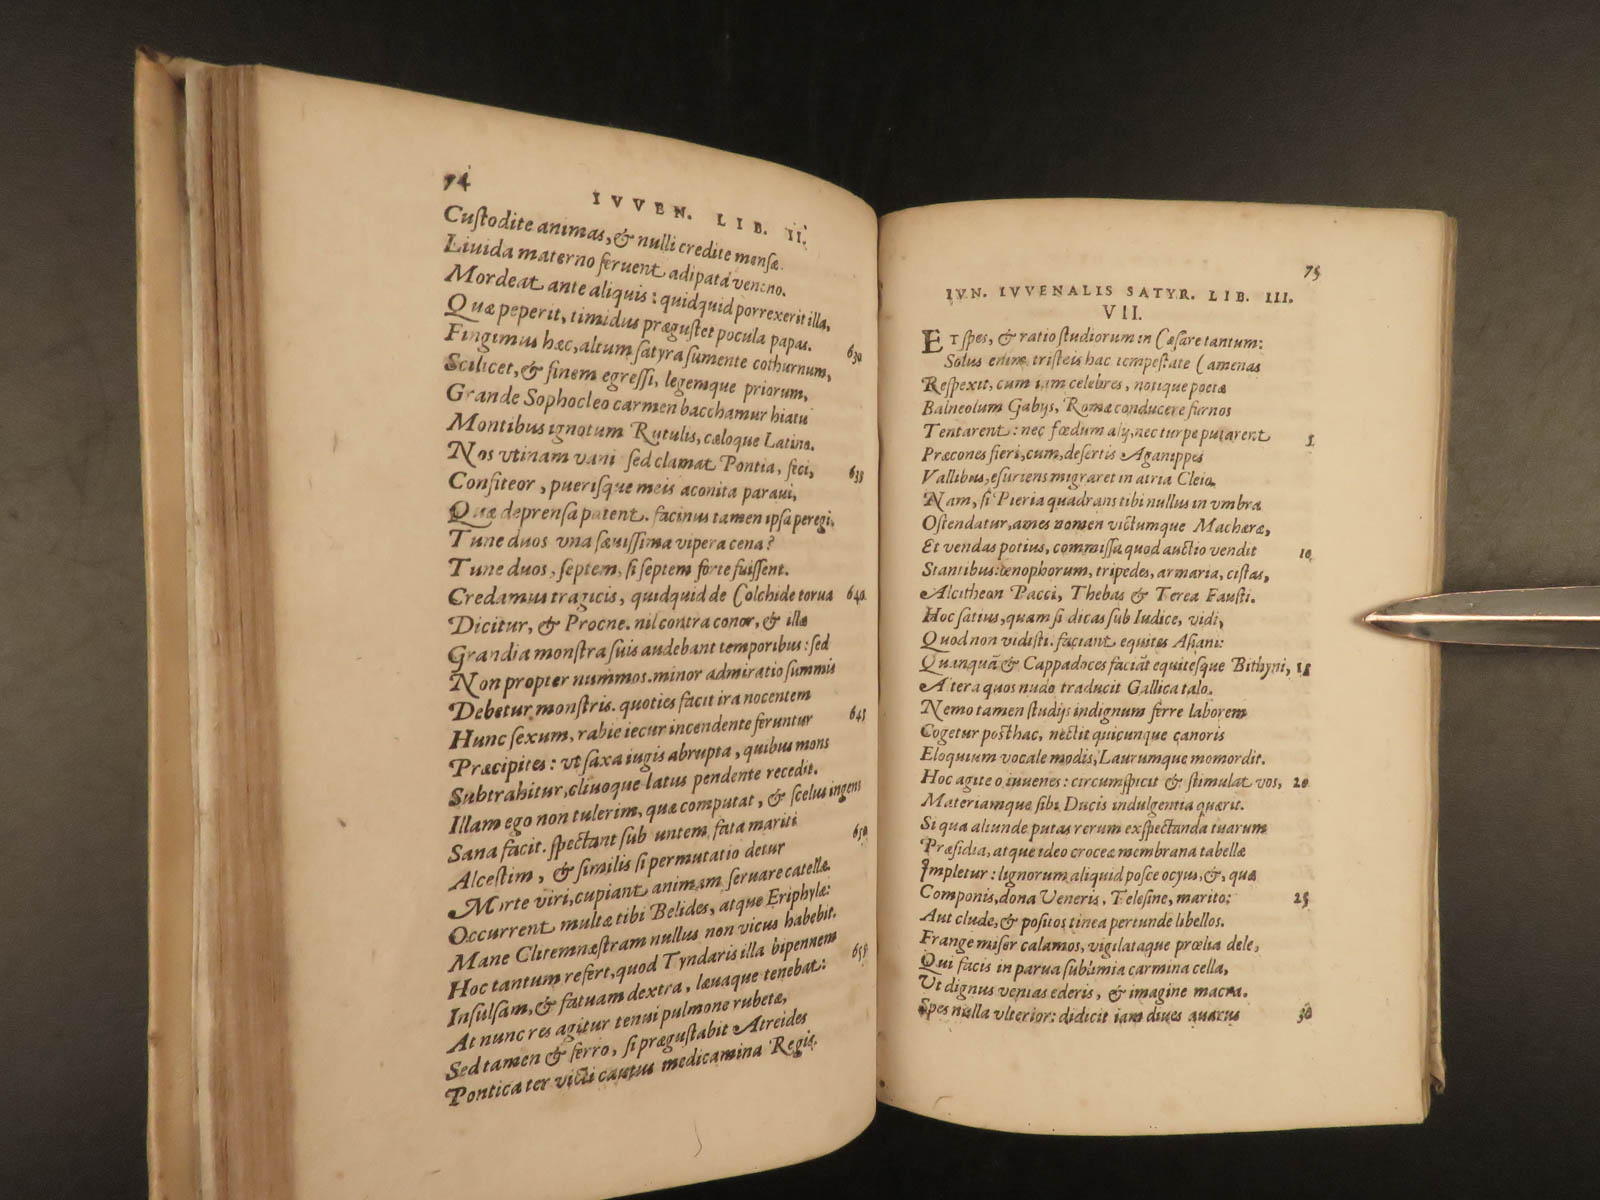 74
IVVEN. LIB. II.
Cuſtodite animas, & nulli credite mensæ.
Liuida materno feruent adipata veneno.
Mordeat ante aliquis: quidquid porrexerit illa,
Quæ peperit, timidus prægustet pocula papas.
Fingimus hæc, altum satyra sumente cothurnum, 630
Scilicet, & finem egreſſi, legemque priorum,
Grande Sophocleo carmen bacchamur hiatu
Montibus ignotum Rutulis, cæloque Latino.
Nos vtinam vani sed clamat Pontia, feci,
Confiteor, puerisque meis aconita paraui, 635
Quæ deprensa patent. facinus tamen ipsa peregi.
Tune duos vna sæuiſſima vipera cena?
Tune duos, septem, si septem forte fuiſſent.
Credamus tragicis, quidquid de Colchide torua 640
Dicitur, & Procne. nil contra conor, & illæ
Grandia monſtra suis audebant temporibus: sed
Non propter nummos. minor admiratio summis
Debetur monſtris. quoties facit ira nocentem
Hunc sexum, rabie iecur incendente feruntur 645
Præcipites: vt saxa iugis abrupta, quibus mons
Subtrahitur, cliuoque latus pendente recedit.
Illam ego non tulerim, quæ computat, & scelus ingens
Sana facit. spectant sub untem fata mariti 650
Alcestim, & similis si permutatio detur
Morte viri, cupiant animam seruare catellæ.
Occurrent multæ tibi Belides, atque Eriphylæ:
Mane Clitemnæſtram nullus non vicus habebit.
Hoc tantum refert, quod Tyndaris illa bipennem 655
Insulsam, & fatuam dextra, læuaque tenebat:
At nunc res agitur tenui pulmone rubetæ,
Sed tamen & ferro, si prægustabit Atreides
Pontica ter victi cautus medicamina Regis.
75
IVN. IVVENALIS SATYR. LIB. III.
VII.
ET spes, & ratio ſtudiorum in Cæsare tantum:
Solus enim tristeis hac tempestate Camenas
Respexit, cum iam celebres, notique poetæ
Balneolum Gabijs, Romæ conducere furnos
Tentarent: nec fœdum alij, nec turpe putarent 5
Præcones fieri, cum, desertis Aganippes
Vallibus, esuriens migraret in atria Cleio.
Nam, si Pieria quadrans tibi nullus in vmbra
Oſtendatur, ames nomen victumque Machæræ,
Et vendas potius, commiſſa quod auctio vendit 10
Stantibus: œnophorum, tripedes, armaria, cistas,
Alcitheon Pacci, Thebas & Terea Fausti.
Hoc satius, quam si dicas sub Iudice, vidi,
Quod non vidisti. faciant equites Asiani:
Quanquā & Cappadoces faciāt equitesque Bithyni, 15
Altera quos nudo traducit Gallica talo.
Nemo tamen ſtudijs indignum ferre laborem
Cogetur posthac, nectit quicunque canoris
Eloquium vocale modis, Laurumque momordit.
Hoc agite o iuuenes: circumspicit & ſtimulat vos, 20
Materiamque sibi Ducis indulgentia quærit.
Si qua aliunde putas rerum exspectanda tuarum
Præsidia, atque ideo croceæ membrana tabellæ
Impletur: lignorum aliquid posce ocyus, &, quæ
Componis, dona Veneris, Telesine, marito: 25
Aut clude, & positos tinea pertunde libellos.
Frange miser calamos, vigilataque prœlia dele,
Qui facis in parua sublimia carmina cella,
Vt dignus venias ederis, & imagine macra.
Spes nulla vlterior: didicit iam diues auarus 30